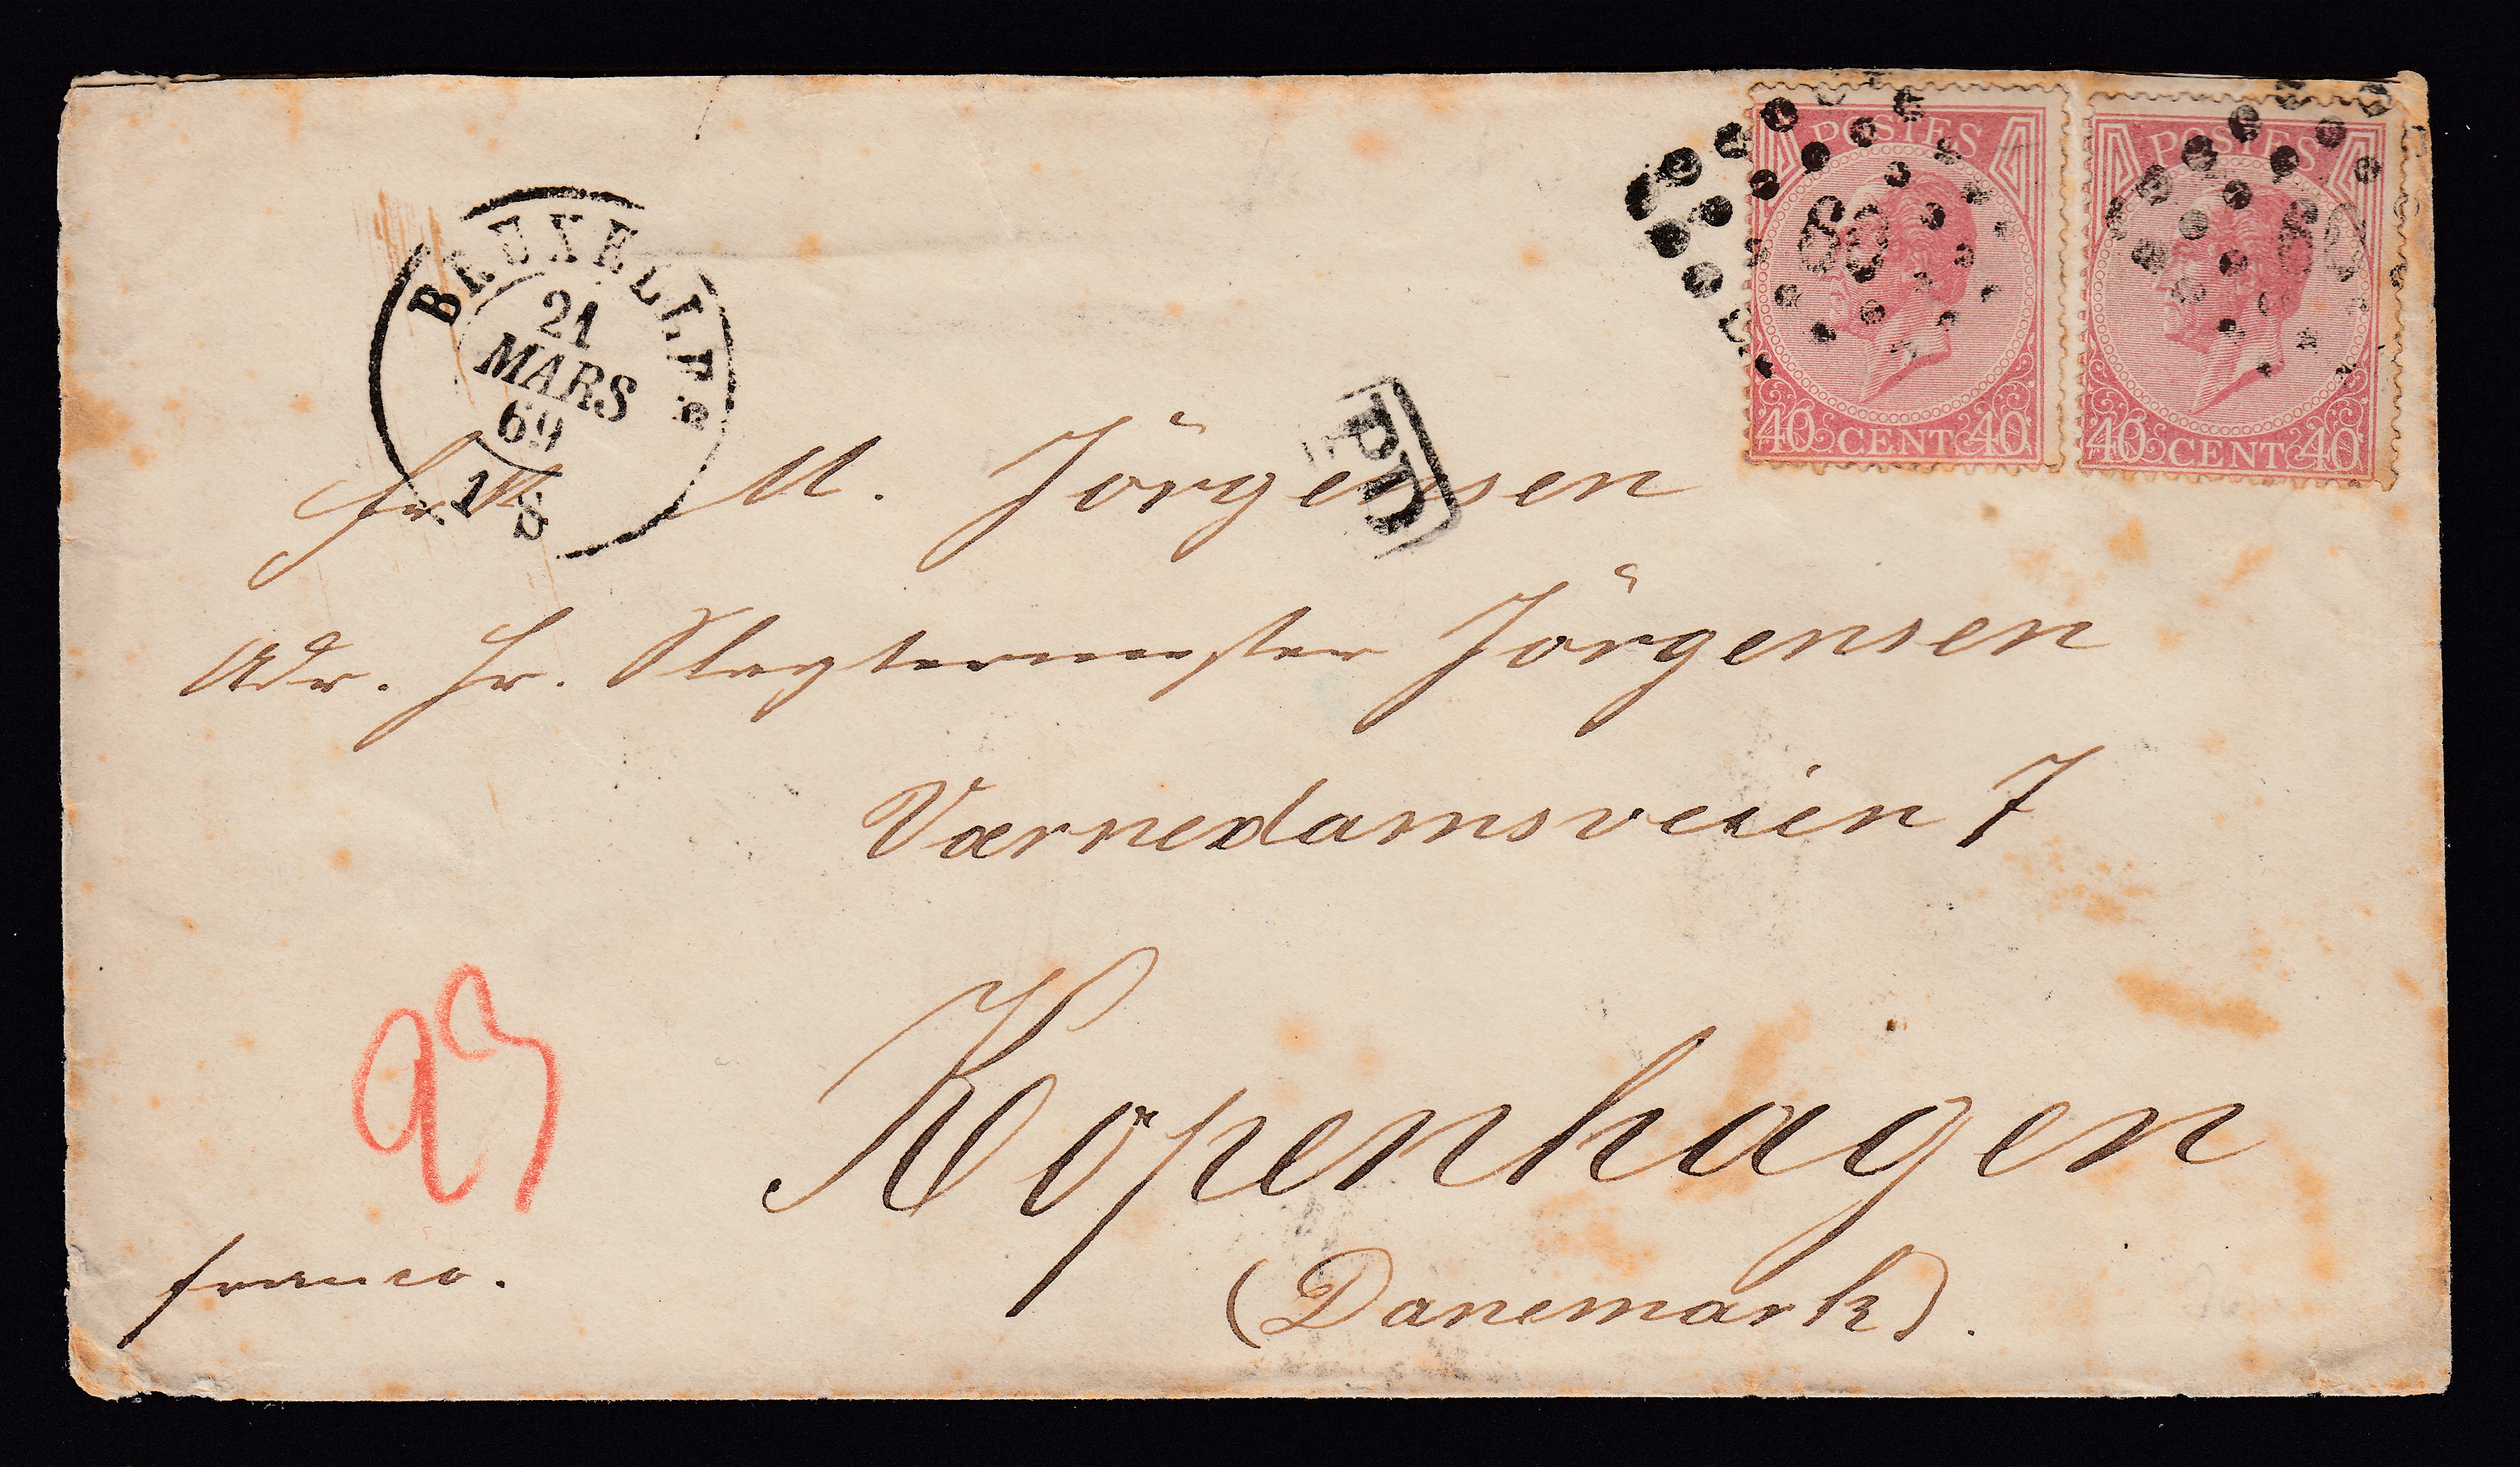 POSTES
40 CENT 40
60
POSTES
40 CENT 40
60
BRUXELLES
21
MARS
69
1 S
PD
Frk M. Jörgensen
Adr. Hr. Slagtermester Jörgensen
Værnedamsveien 7
Kopenhagen
(Danemark).
93
franco.